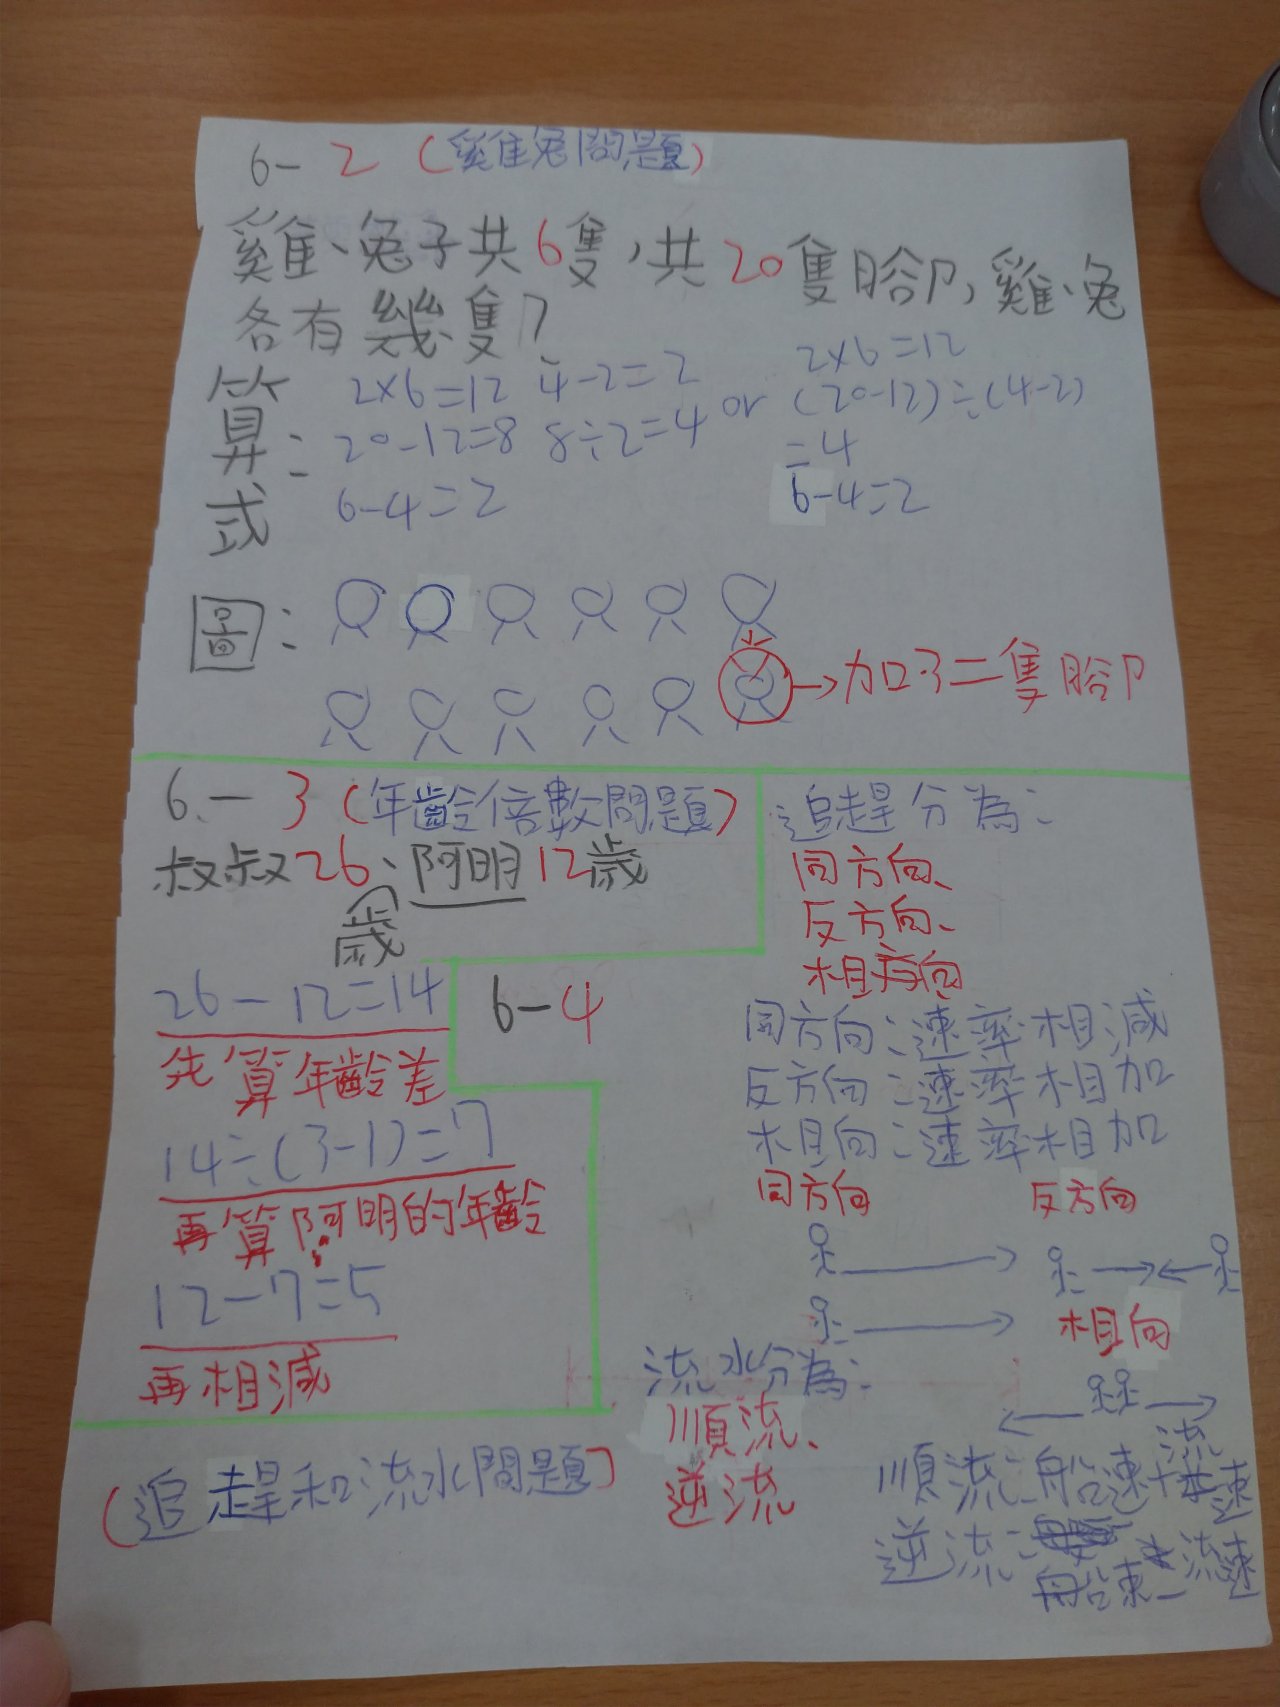 6-2(雞兔問題)
雞、兔子共6隻,共20隻腳,雞、兔
各有幾隻?
算式:
2×6=12 4-2=2
20-12=8 8÷2=4
6-4=2
or
2×6=12
(20-12)÷(4-2)
=4
6-4=2
圖:
→加了二隻腳
6-3(年齡倍數問題)
叔叔26歲、阿明12歲
26-12=14
先算年齡差
14÷(3-1)=7
再算阿明的年齡
12-7=5
再相減
6-4
(追趕和流水問題)
追趕分為:
同方向、
反方向、
相向
同方向:速率相減
反方向:速率相加
相向:速率相加
同方向
反方向
相向
流水分為:
順流、
逆流
順流:船速+流速
逆流:船速-流速